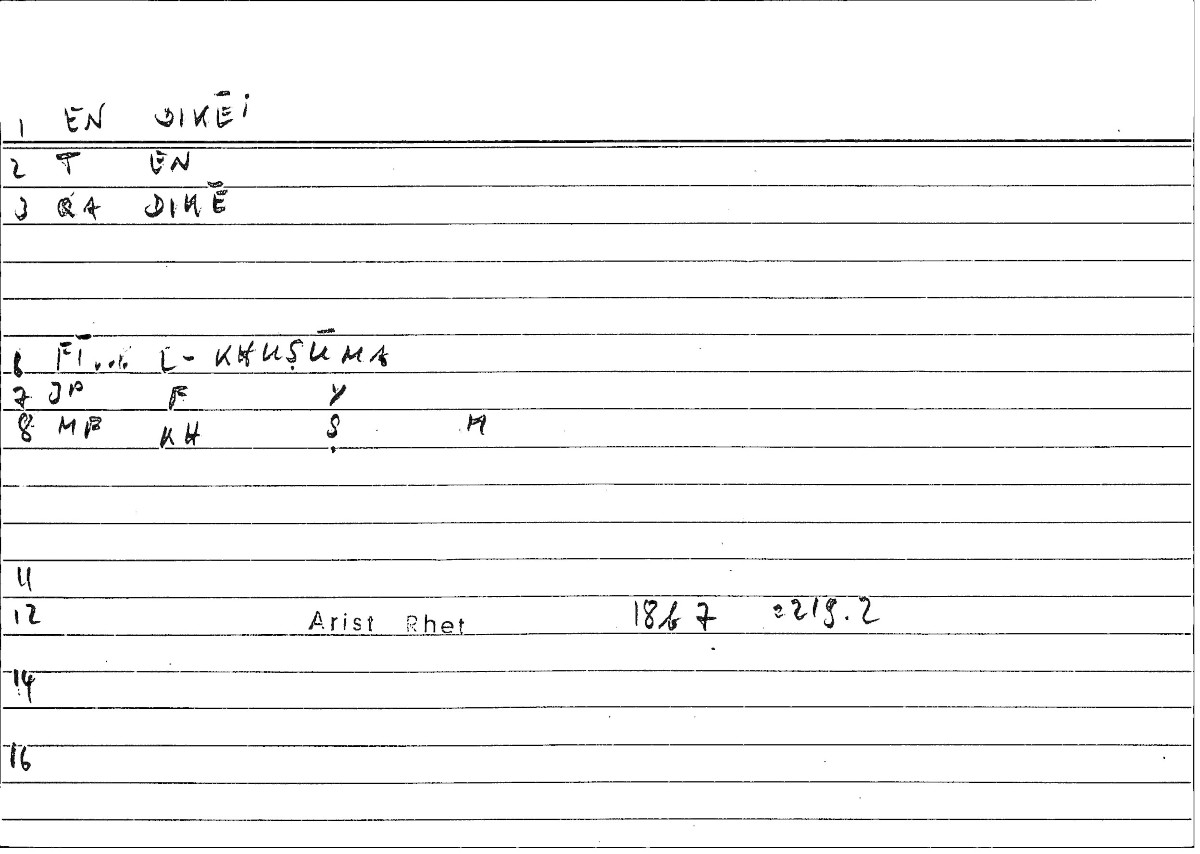 1 EN DIKĒI
2 T EN
3 QA DIKĒ
6 FĪ... L-KHUṢŪMA
7 JP F Y
8 MF KH Ṣ M
11
12 Arist Rhet 18b7 =219.2
14
16